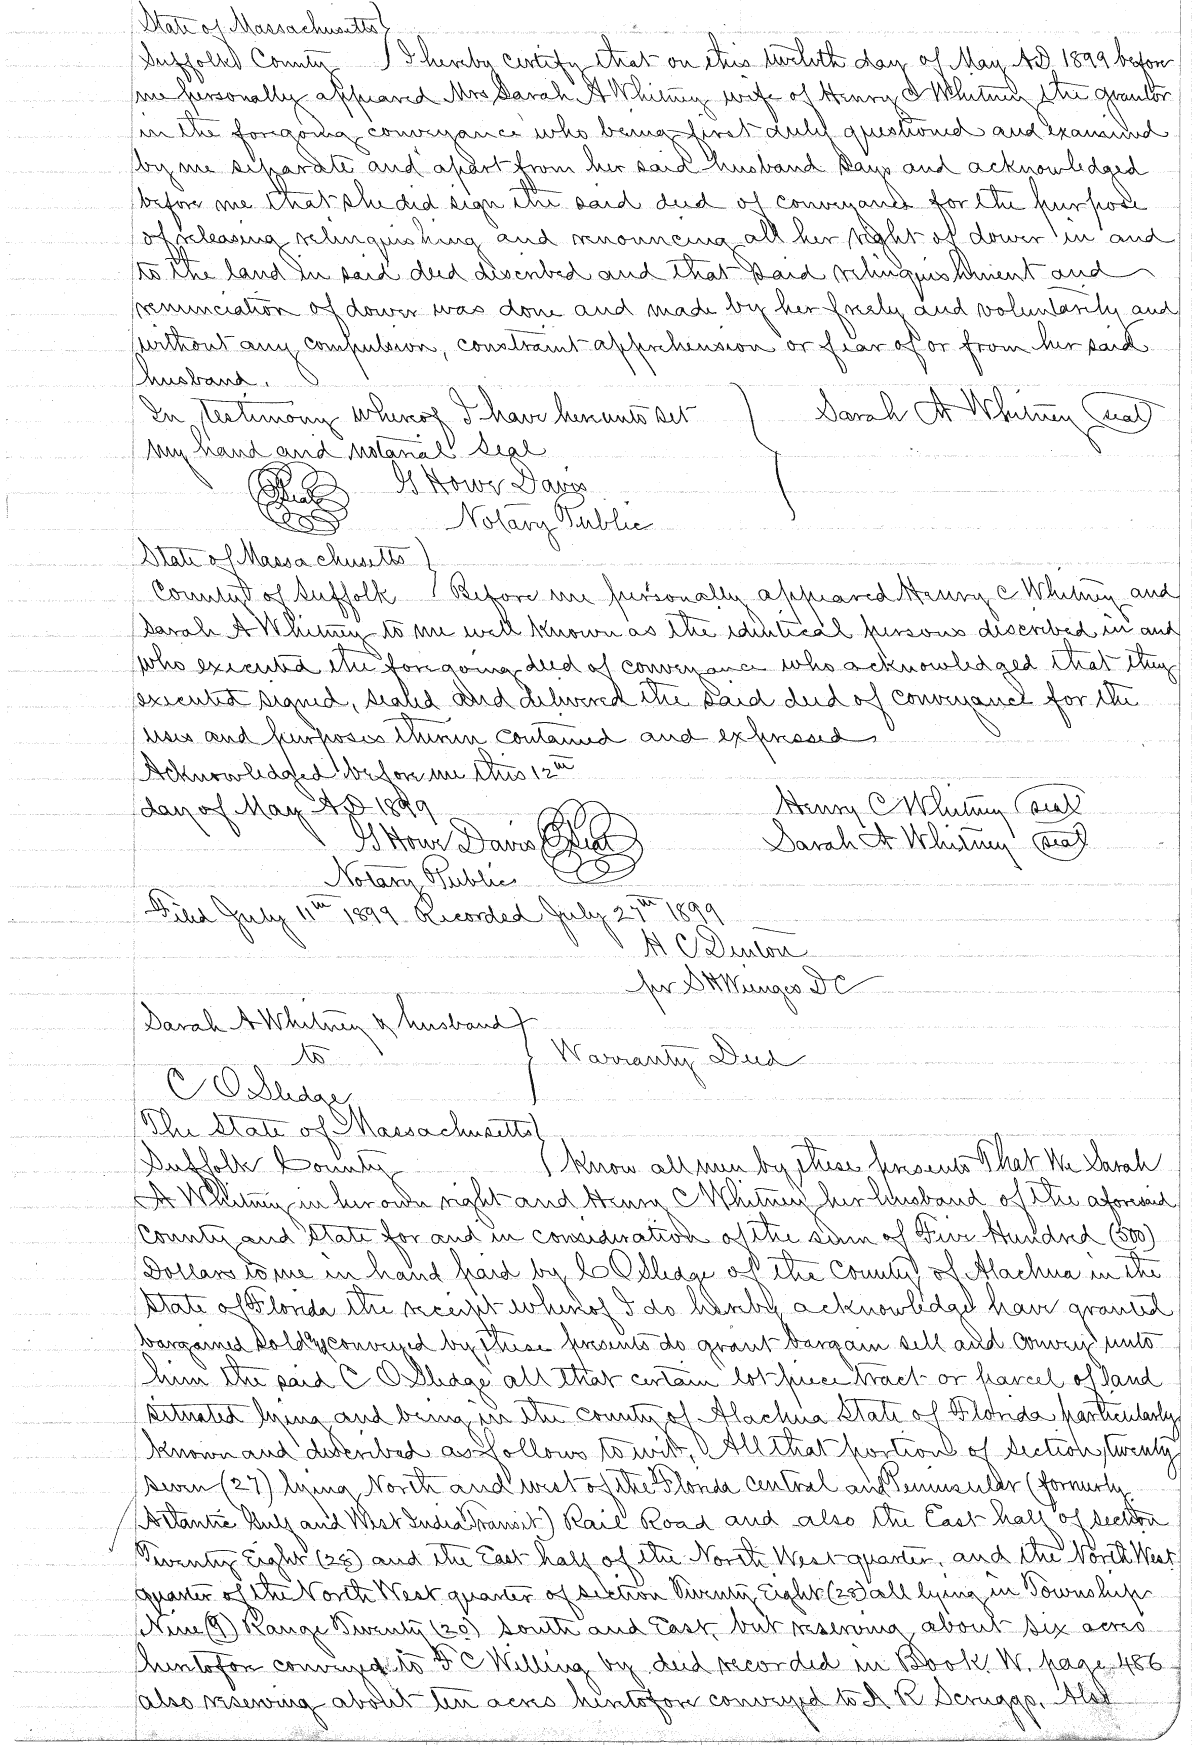 State of Massachusetts
Suffolk County I hereby certify that on this twelth day of May A.D. 1899 before
me personally appeared Mrs Sarah A Whitney wife of Henry C Whitney the grantor
in the foregoing conveyance who being first duly questioned and examined
by me separate and apart from her said husband says and acknowledged
before me that she did sign the said deed of conveyance for the purpose
of releasing relinquishing and renouncing all her right of dower in and
to the land in said deed described and that said relinquishment and
renunciation of dower was done and made by her freely and voluntarily and
without any compulsion, constraint apprehension or fear of or from her said
husband.
In testimony whereof I have hereunto set Sarah A Whitney (seal)
my hand and notarial seal
(Seal) G Howe Davis
Notary Public
State of Massachusetts
County of Suffolk Before me personally appeared Henry C Whitney and
Sarah A Whitney to me well known as the identical persons described in and
who executed the foregoing deed of conveyance who acknowledged that they
executed signed, sealed and delivered the said deed of conveyance for the
uses and purposes therein contained and expressed
Acknowledged before me this 12th
day of May A.D 1899 Henry C Whitney (seal)
G Howe Davis (Seal) Sarah A Whitney (seal)
Notary Public
Filed July 11th 1899 Recorded July 27th 1899
H C Denton
pr S H Wienges DC
Sarah A Whitney & husband
to Warranty Deed
C O Sledge
The State of Massachusetts
Suffolk County Know all men by these presents That We Sarah
A Whitney in her own right and Henry C Whitney her husband of the aforesaid
County and State for and in consideration of the sum of Five Hundred (500)
Dollars to me in hand paid by C O Sledge of the County of Alachua in the
State of Florida the receipt whereof I do hereby acknowledge have granted
bargained sold & conveyed by these presents do grant bargain sell and convey unto
him the said C O Sledge all that certain lot piece tract or parcel of land
situated lying and being in the county of Alachua State of Florida particularly
known and described as follows to wit, All that portion of section twenty
seven (27) lying North and west of the Florida central and Peninsular (formerly
Atlantic Gulf and West India Transit) Rail Road and also the East half of section
Twenty Eight (28) and the East half of the North West quarter, and the North West
quarter of the North West quarter of section Twenty Eight (28) all lying in Township
Nine (9) Range Twenty (20) South and East, but reserving about six acres
heretofore conveyed to F C Welling by deed recorded in Book W. page 486
also reserving about ten acres heretofore conveyed to A R Scruggs, Also